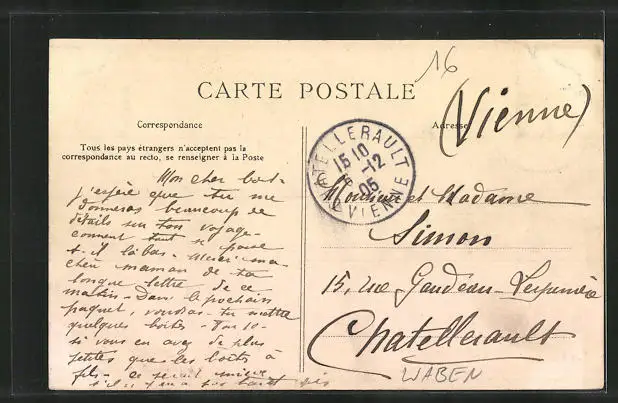 16
CARTE POSTALE
(Vienne)
Correspondance
Adresse
Tous les pays étrangers n'acceptent pas la
correspondance au recto, se renseigner à la Poste
CHATELLERAULT
15 10
5 -12
05
VIENNE
Mon cher
j'espère que tu me
donneras beaucoup de
détails sur ton voyage
comment tout se passe
t-il là bas - Merci ma
chère maman de ta
longue lettre de ce
matin - Dans le prochain
paquet, voudras-tu mettre
quelques boîtes
si vous en avez de plus
petites que les boîts à
fils - ce serait mieux
Monsieur et Madame
Simon
15, rue Gaudeau-
Chatellerault
WABEN